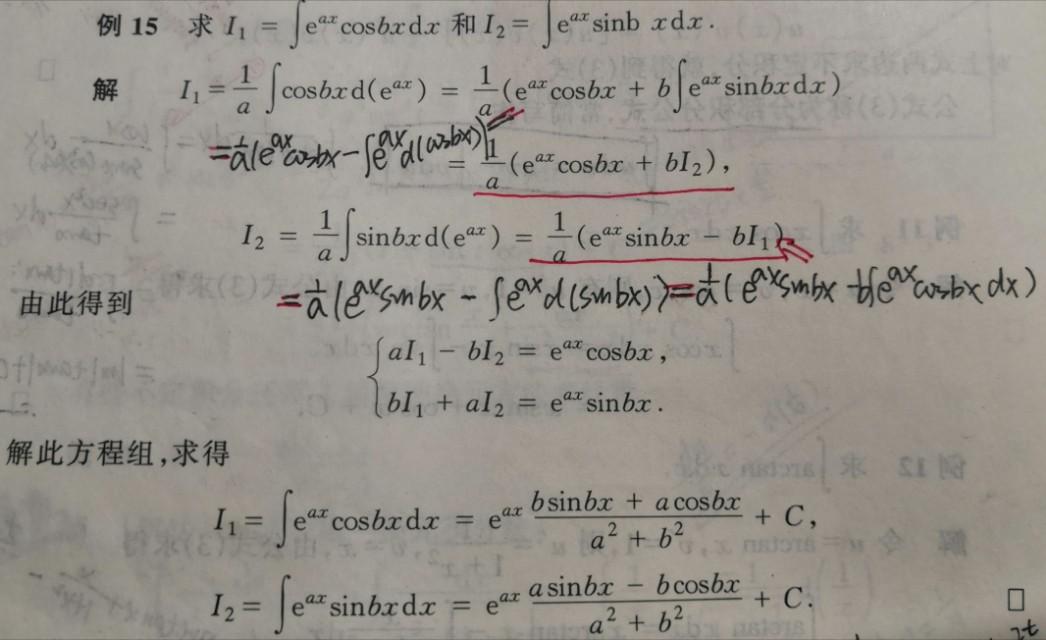 例 15 求 I₁ = ∫e^{ax}cosbxdx 和 I₂ = ∫e^{ax}sinb xdx.
解 I₁ = 1/a ∫cosbxd(e^{ax}) = 1/a (e^{ax}cosbx + b∫e^{ax}sinbxdx)
= 1/a (e^{ax}cosbx − ∫e^{ax}d(cosbx))
= 1/a (e^{ax}cosbx + bI₂),
I₂ = 1/a ∫sinbxd(e^{ax}) = 1/a (e^{ax}sinbx − bI₁)
= 1/a (e^{ax}sinbx − ∫e^{ax}d(sinbx)) = 1/a (e^{ax}sinbx − b∫e^{ax}cosbx dx)
由此得到
{ aI₁ − bI₂ = e^{ax}cosbx,
bI₁ + aI₂ = e^{ax}sinbx.
解此方程组,求得
I₁ = ∫e^{ax}cosbxdx = e^{ax} (bsinbx + acosbx)/(a² + b²) + C,
I₂ = ∫e^{ax}sinbxdx = e^{ax} (asinbx − bcosbx)/(a² + b²) + C. □